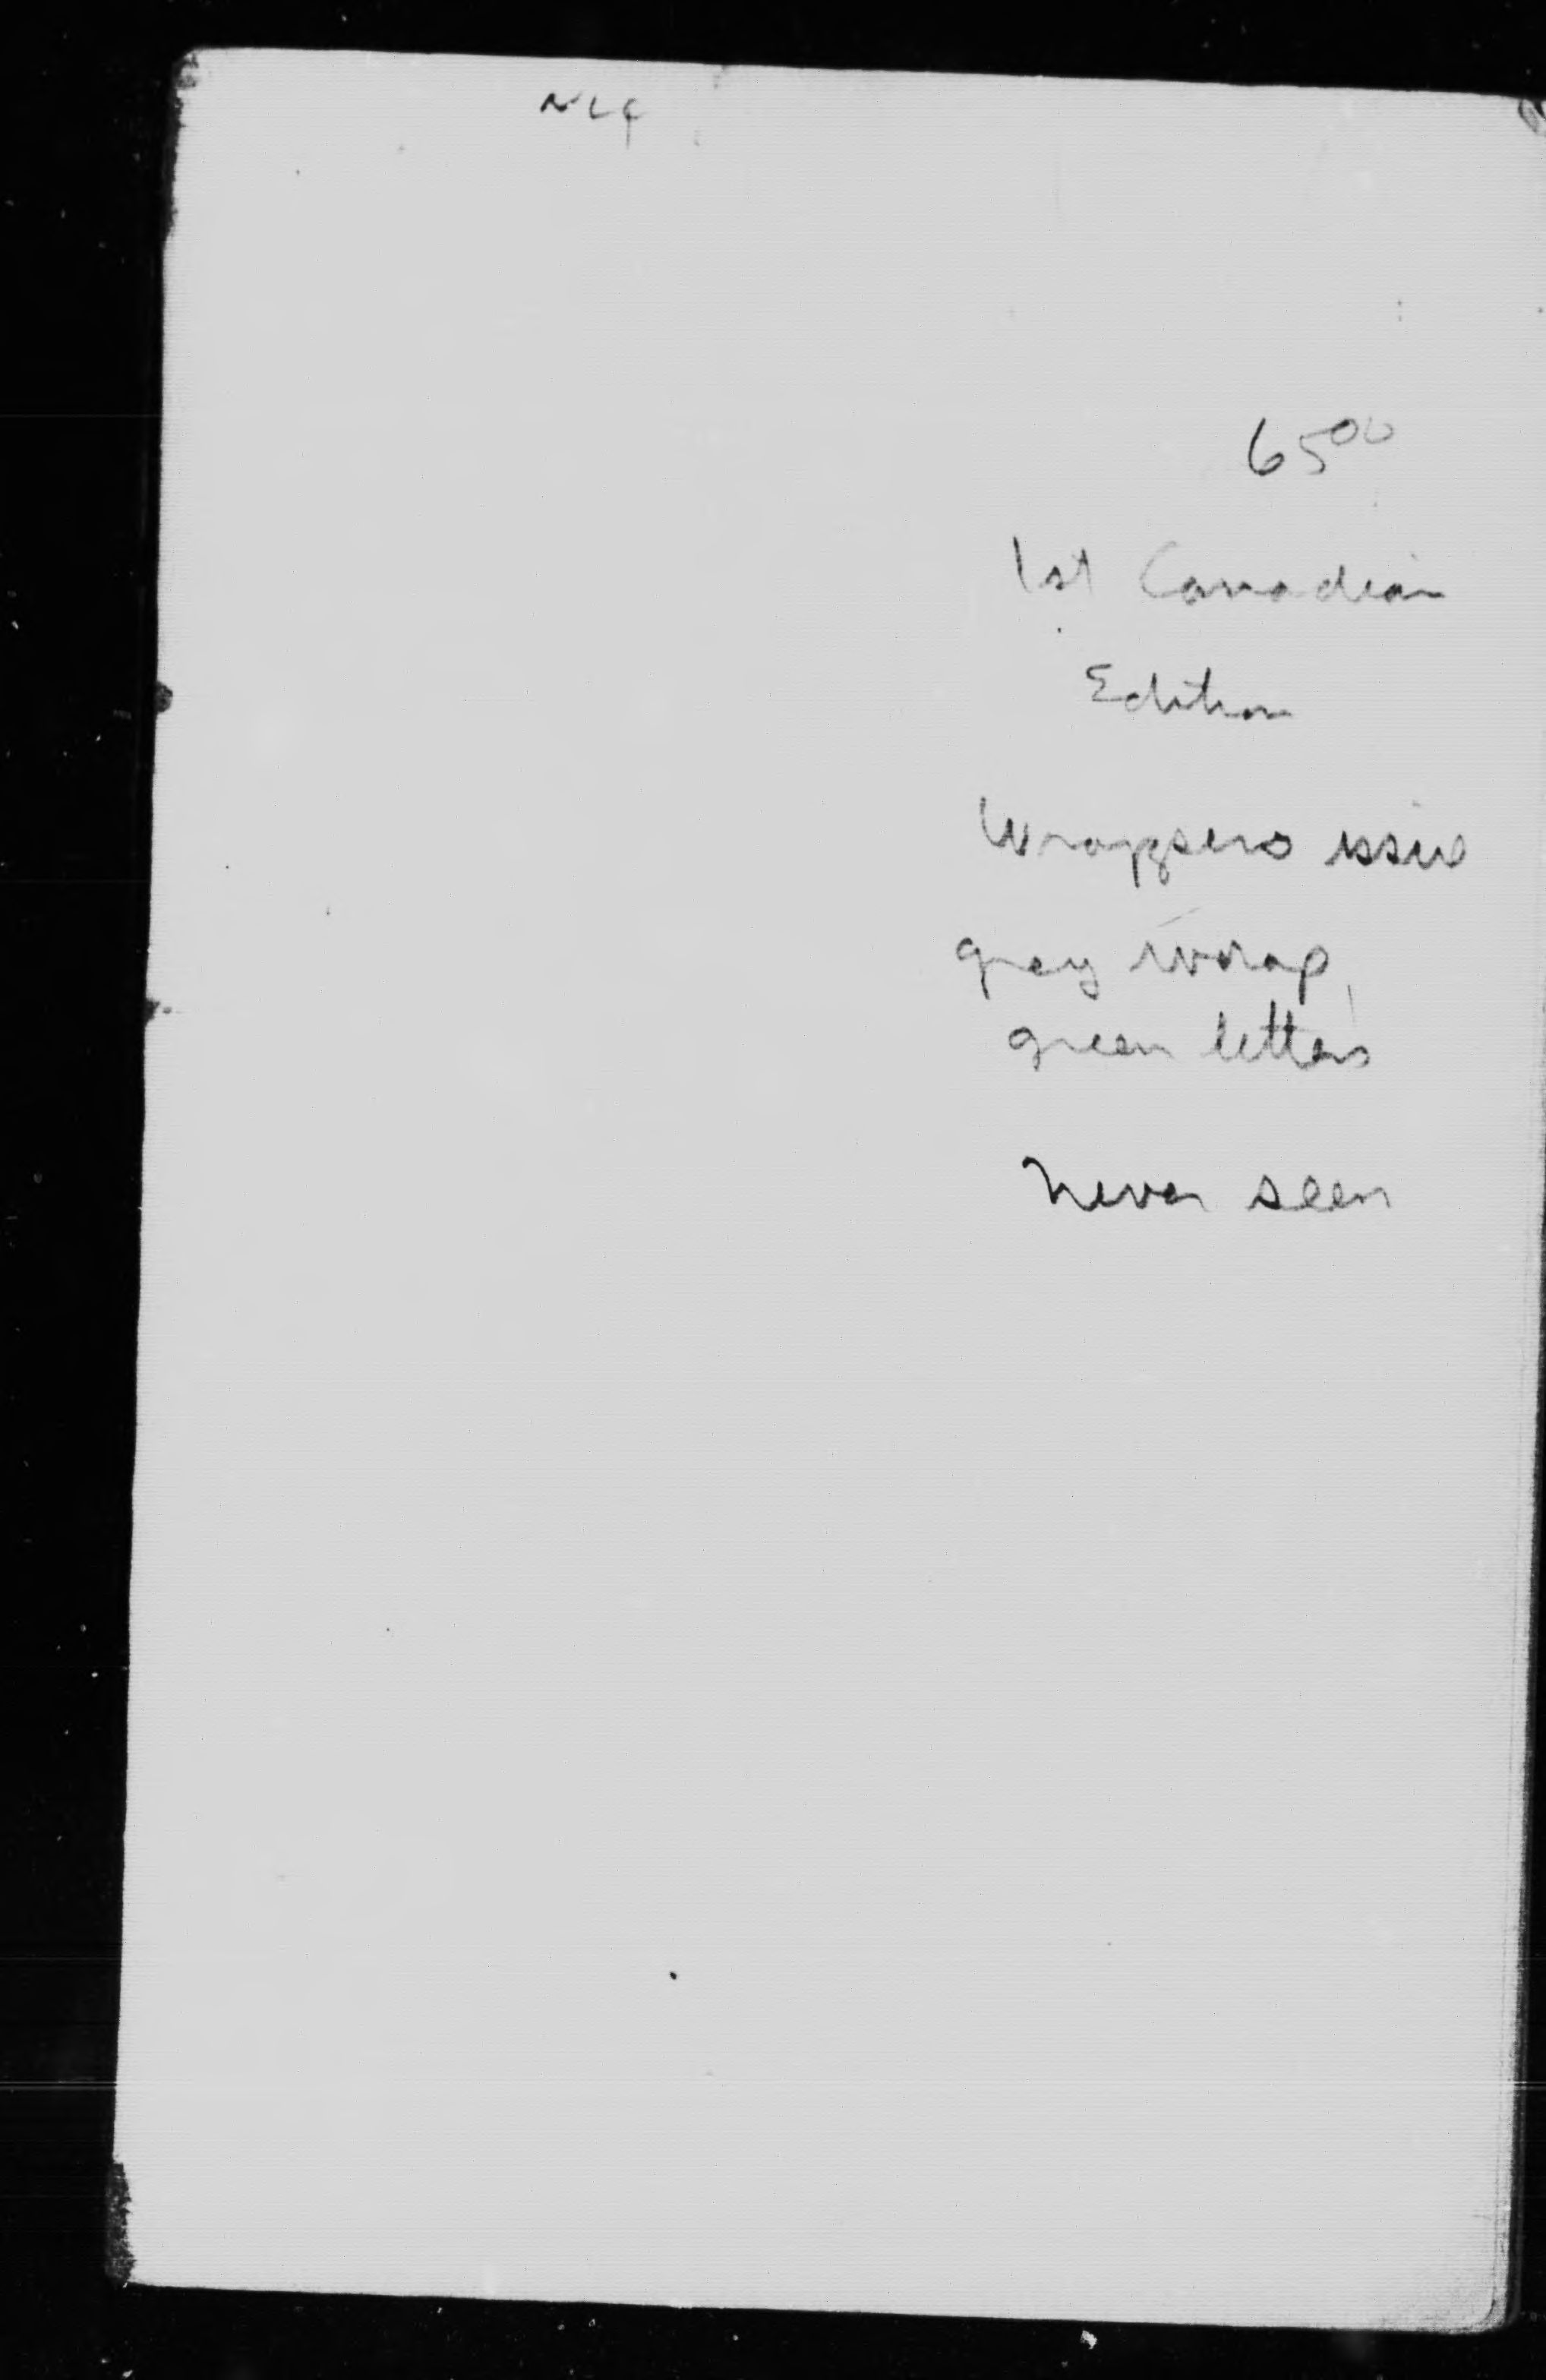 65⁰⁰
1st Canadian
Edition
Wrappers issue
grey wrap,
green letters
never seen